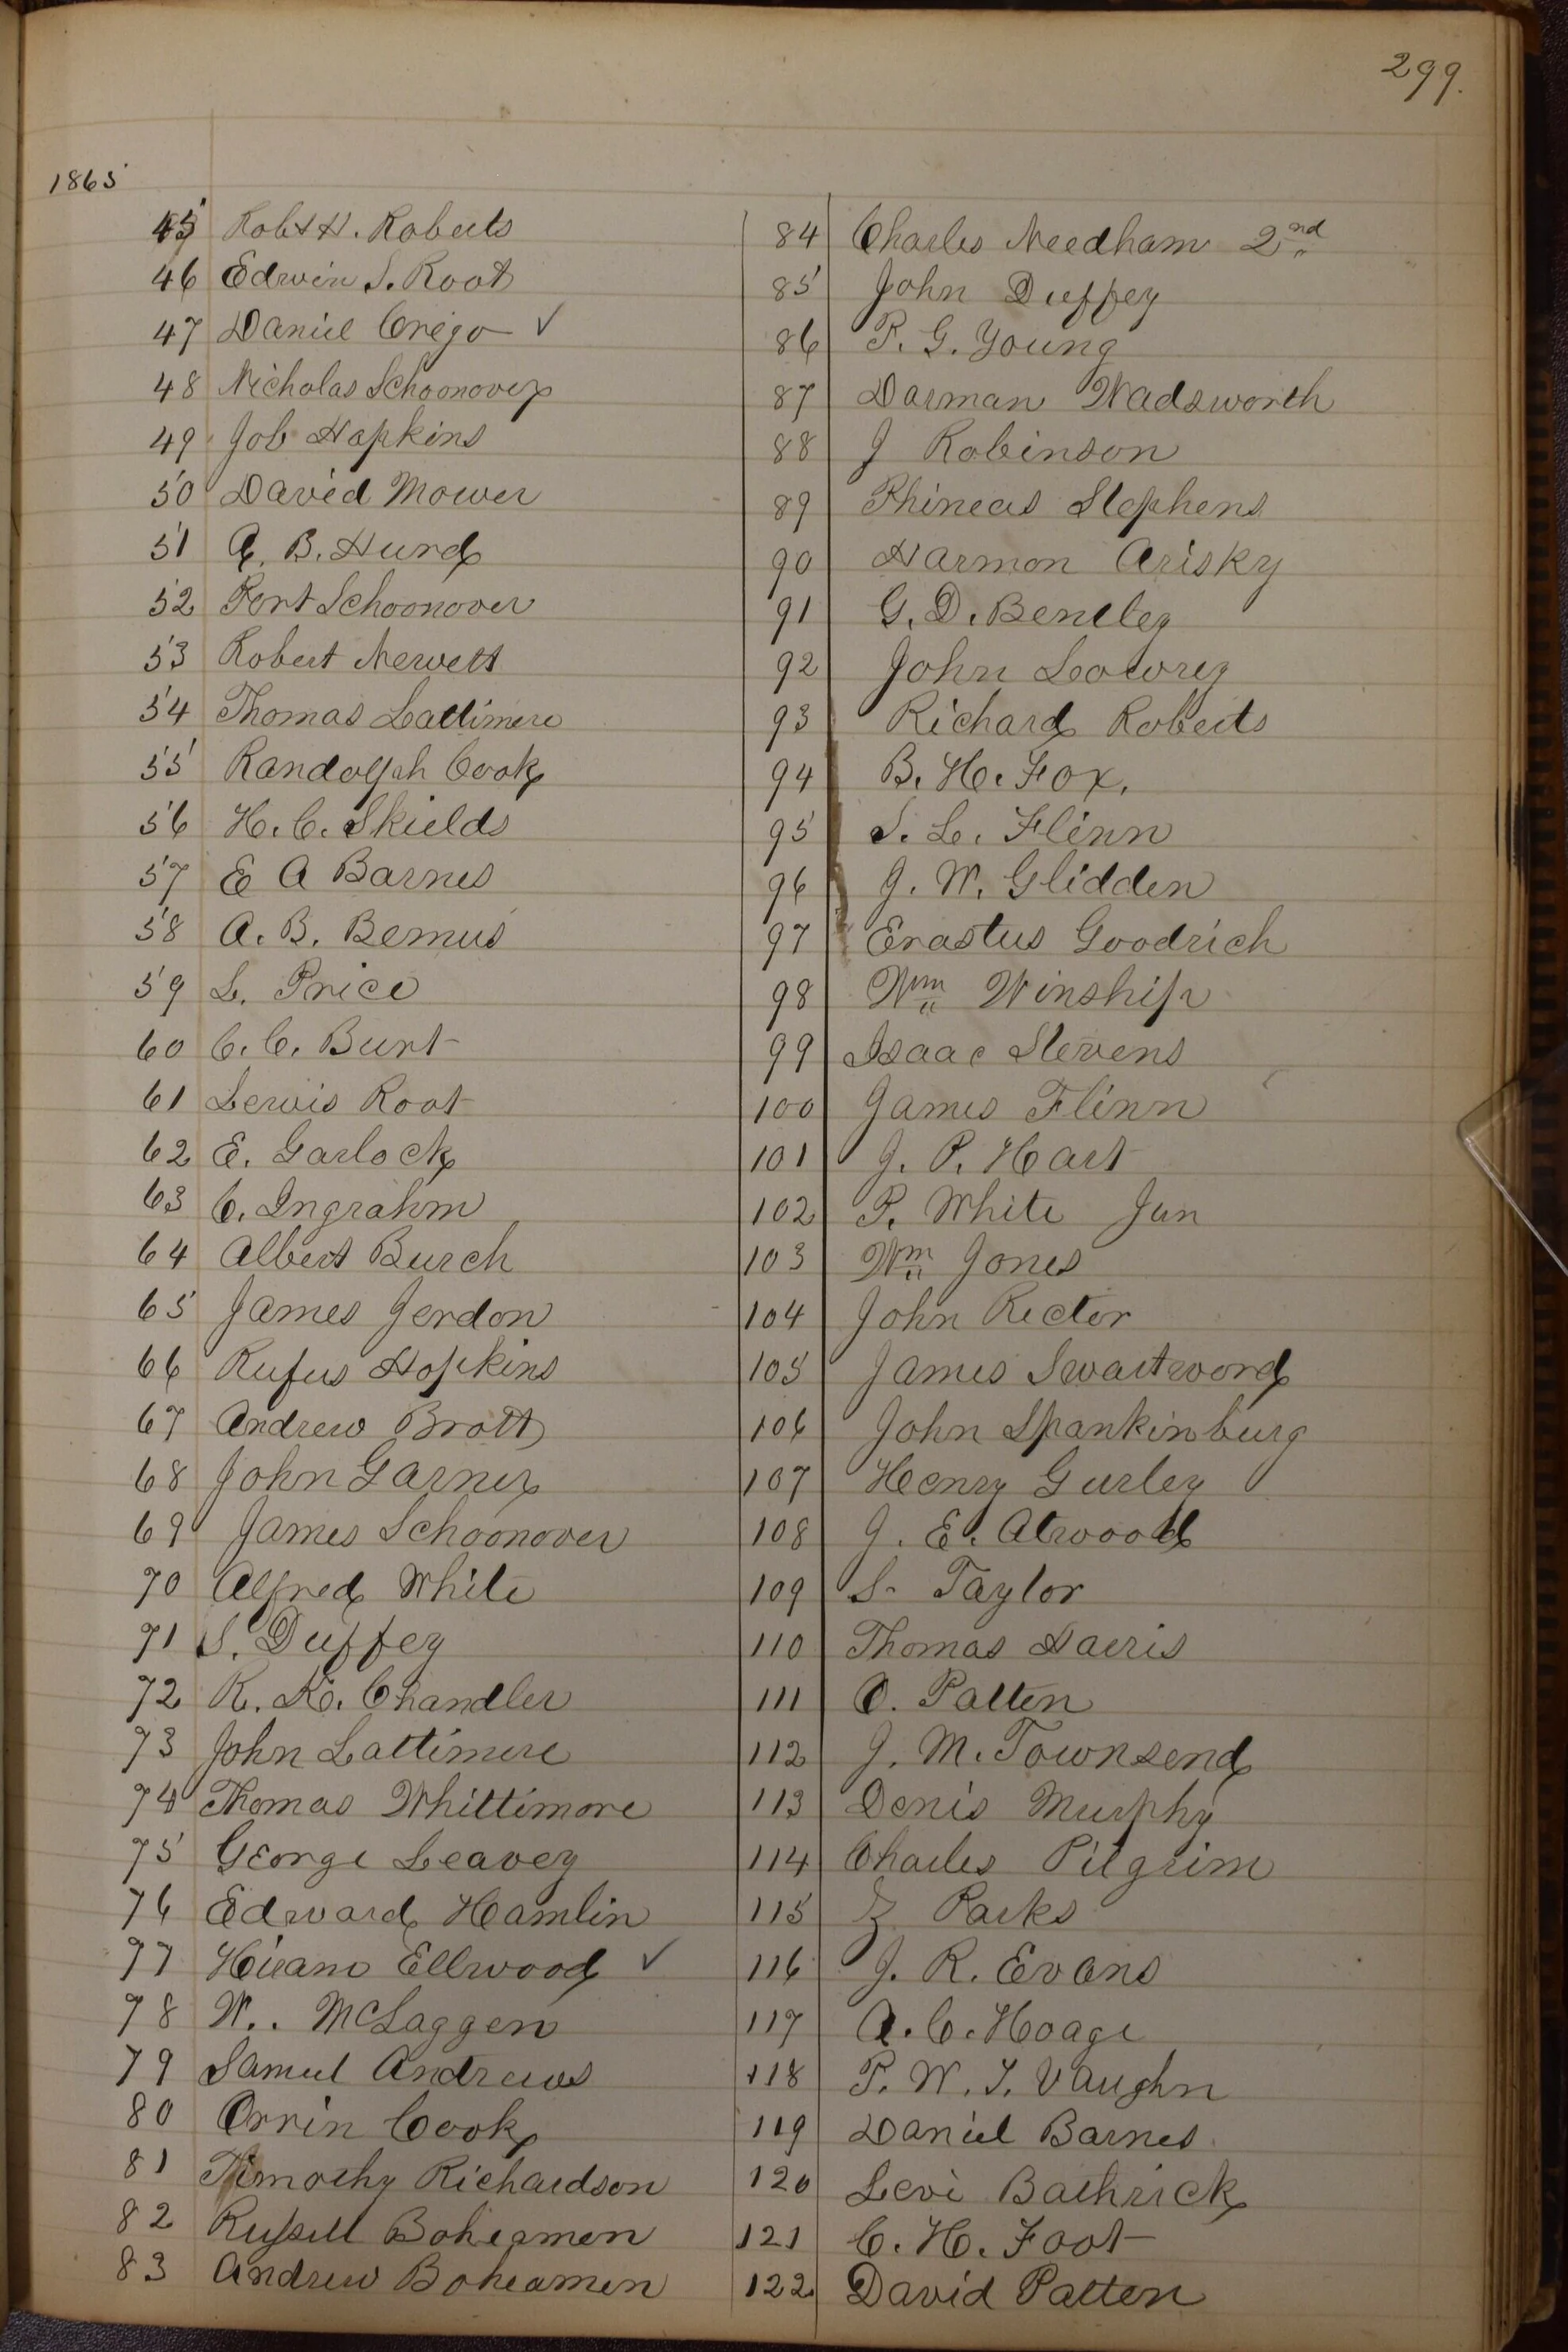 299.
1865
45 Robt H. Roberts
46 Edwin S. Root
47 Daniel Crego ✓
48 Nicholas Schoonover
49 Job Hopkins
50 David Mower
51 A. B. Hurd
52 Port Schoonover
53 Robert Newett
54 Thomas Lattimere
55 Randolph Cook
56 H. C. Skields
57 E A Barnes
58 A. B. Bemus
59 L. Price
60 C. C. Burt
61 Lewis Root
62 E. Garlock
63 C. Ingrahm
64 Albert Burch
65 James Jerdon
66 Rufus Hopkins
67 Andrew Brott
68 John Garner
69 James Schoonover
70 Alfred White
71 S. Duffey
72 R. K. Chandler
73 John Lattimere
74 Thomas Whittimore
75 George Leavey
76 Edward Hamlin
77 Hiram Ellwood ✓
78 W.. McLaggen
79 Samuel Andrews
80 Orrin Cook
81 Timothy Richardson
82 Russell Boheamen
83 Andrew Boheamen
84 Charles Needham 2nd
85 John Duffey
86 P. G. Young
87 Darman Wadsworth
88 J Robinson
89 Phineas Stephens
90 Harmon Arisky
91 G. D. Bentley
92 John Lowrey
93 Richard Roberts
94 B. H. Fox.
95 S. L. Flinn
96 J. W. Glidden
97 Erastus Goodrich
98 Wm Winship
99 Isaac Stevens
100 James Flinn
101 J. P. Hart
102 P. White Jun
103 Wm Jones
104 John Rector
105 James Swartword
106 John Spankinburg
107 Henry Gurley
108 J. E. Atwood
109 S. Taylor
110 Thomas Harris
111 O. Patten
112 J. M. Townsend
113 Denis Murphy
114 Charles Pilgrim
115 Z Parks
116 J. R. Evans
117 A. C. Hoage
118 P. W. T. Vaughn
119 Daniel Barnes
120 Levi Bathrick
121 C. H. Foot
122 David Patten